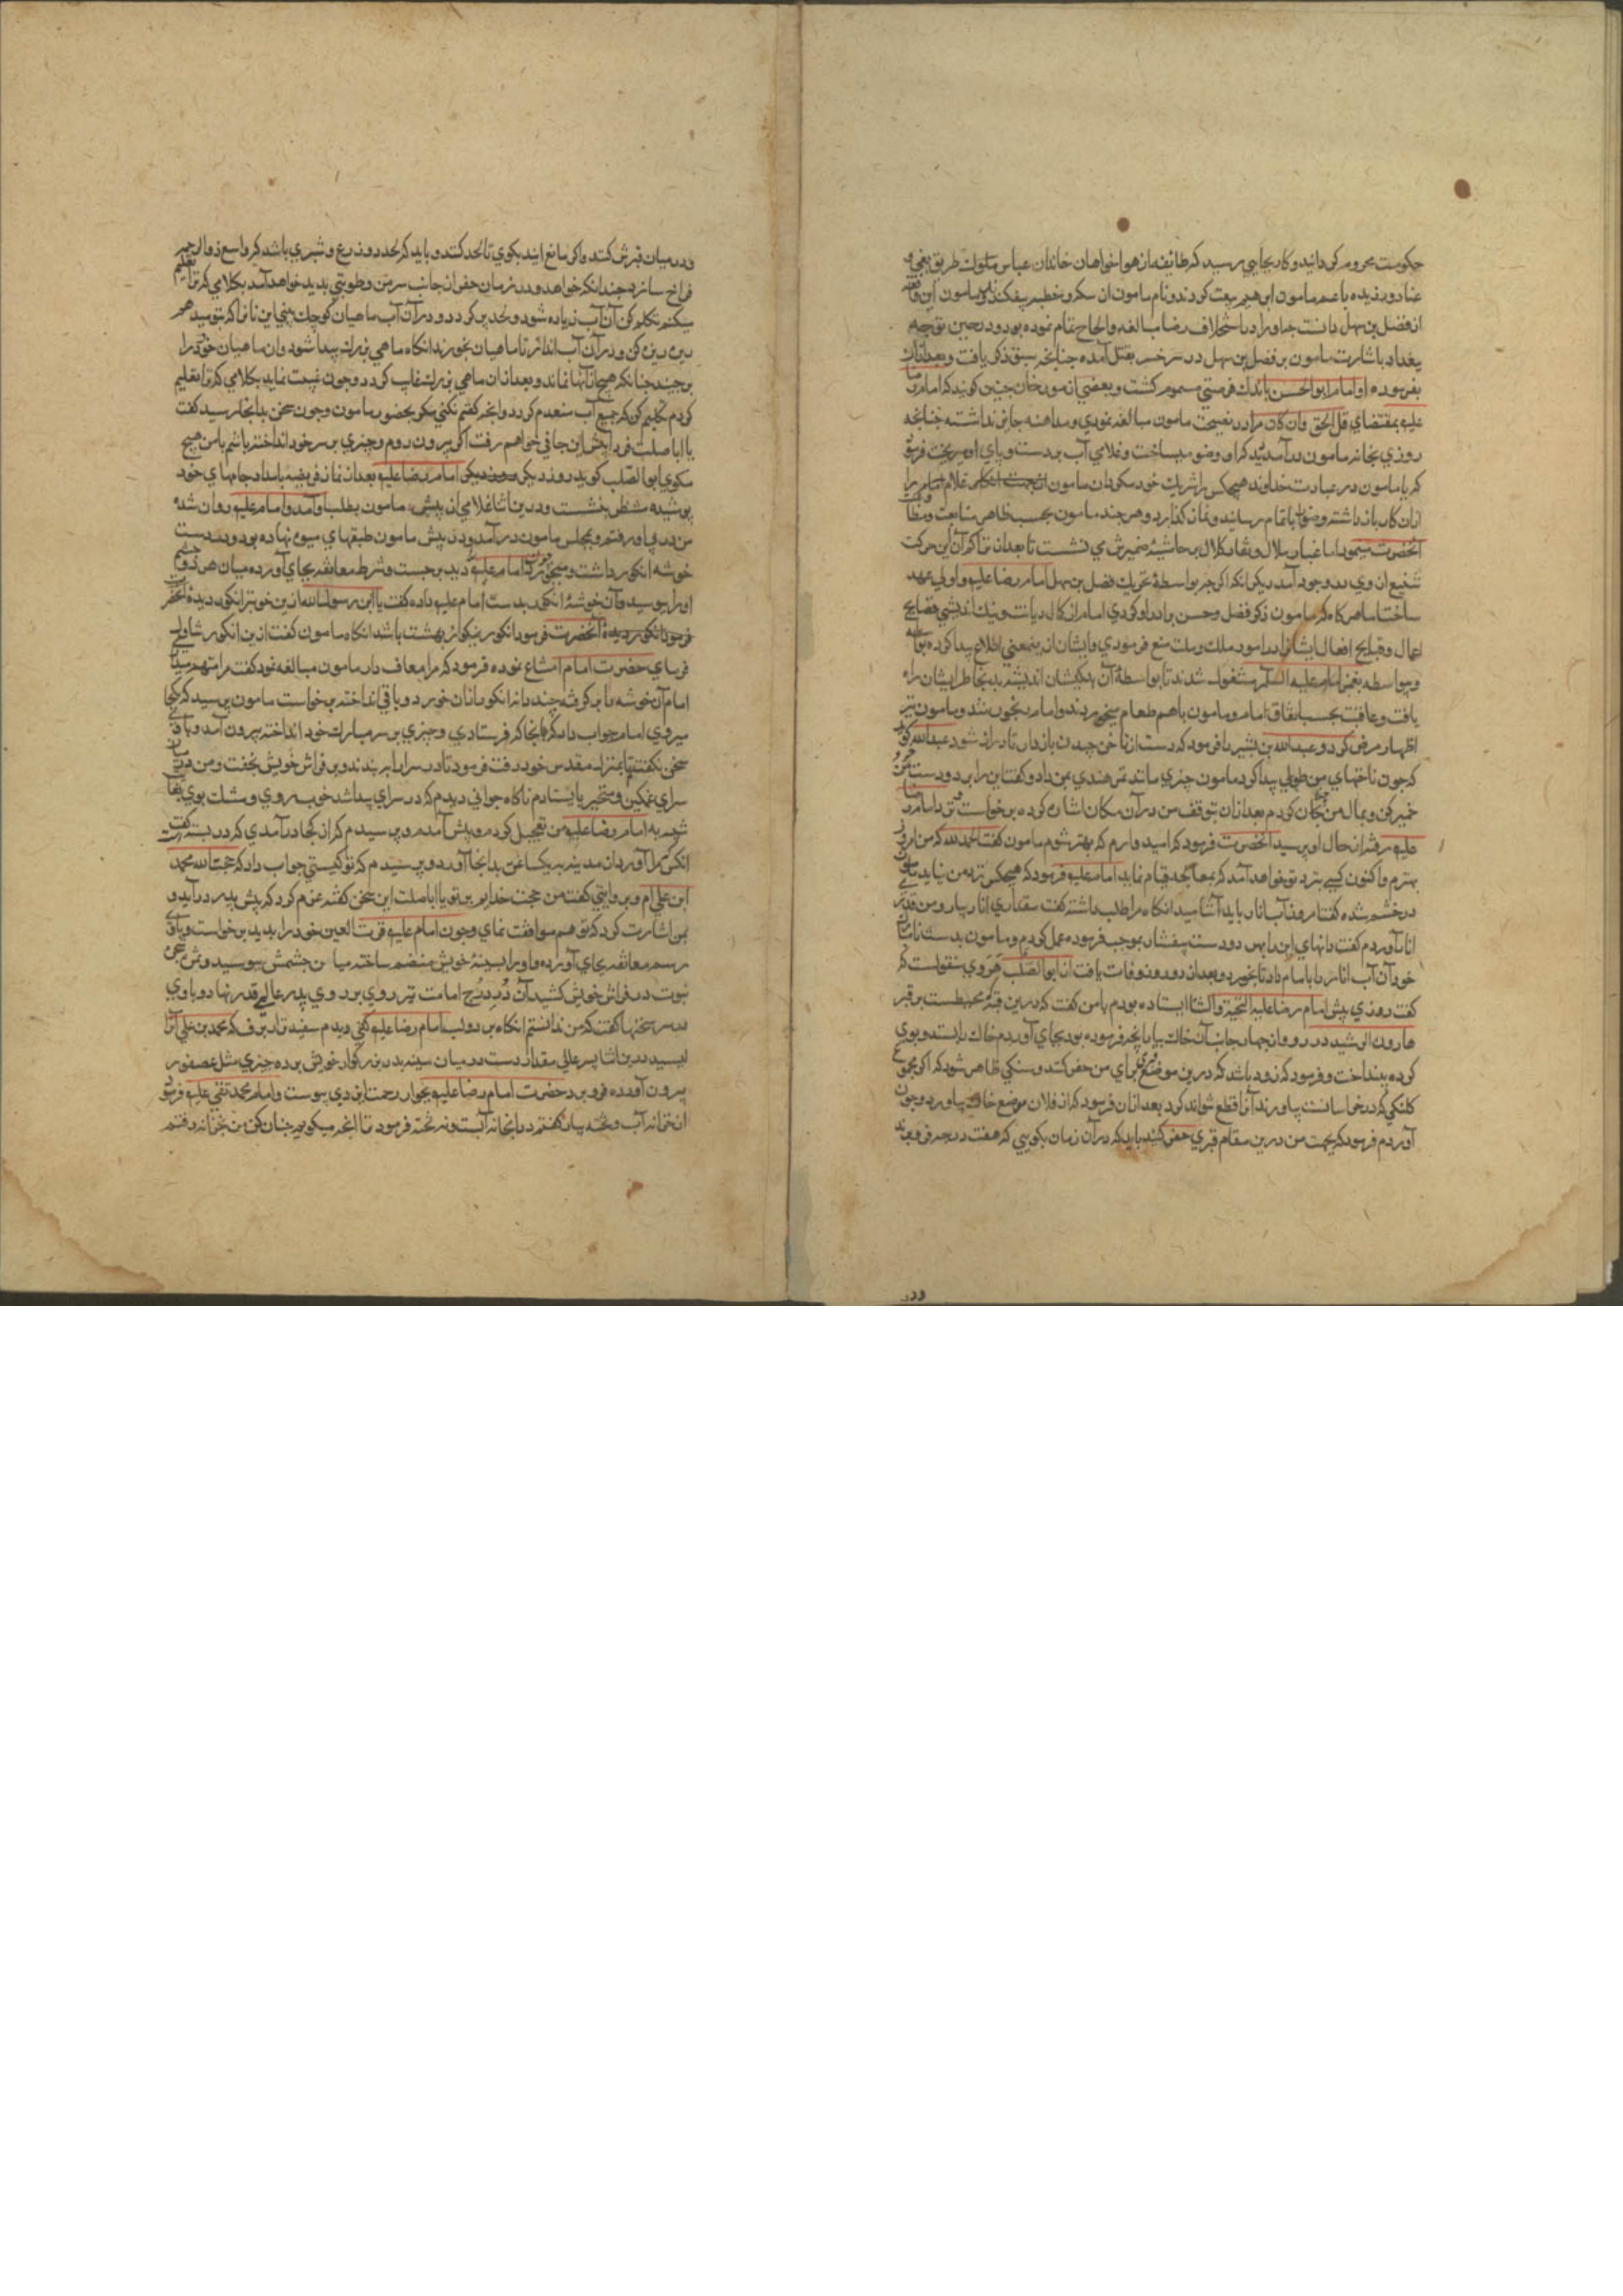 حکومت محروم کردانید و کار بجایی رسید که طائفه از هواخواهان خاندان عباس سلوک طریق بغی و
عناد ورزیده با عم مامون ابراهیم بیعت کردند و نام مامون از سکه و خطبه بیفکندند و مامون این واقعه
از فضل بن سهل دانست چه او را در استخلاف رضا مبالغه و الحاح تمام نموده بود و در حین توجه
بغداد باشارت مامون بر فضل بن سهل در سرخس بقتل آمده جنانجه سبق ذکر یافت و بعد از آن
بفرموده او امام ابو الحسن باندک فرصتی مسموم کشت و بعضی از مورخان جنین کویند که امام رضا
علیه بمقتضای قل الحق وان کان مرا در نصیحت مامون مبالغه نمودی و مداهنه جایز نداشته جنانجه
روزی بخانه مامون درآمد دید که او وضو میساخت و غلامی آب بر دست و پای او میریخت فرمود
که یا مامون در عبادت خداوند هیچکس را شریک خود مکردان مامون غلام را
از آن کار باز داشته وضو را باتمام رسانید و نماز کذارد و هر چند مامون بحسب ظاهر متابعت
آنحضرت نمود اما غبار ملال و نقار کلال بر حاشیه ضمیرش می نشست تا بعد از مذاکره آن این حرکت
شنیع از وی در وجود آمد دیکر آنکه اکر چه بواسطه تحریک فضل بن سهل امام رضا علیه را ولی عهد
ساخت اما هر کاه که مامون ذکر فضل و حسن برادر او کردی امام از کمال دیانت و نیک اندیشی فضایح
اعمال و قبایح افعال ایشان در امور ملک و ملت منع فرمودی و ایشان از ینمعنی اطلاع پیدا کرده
و بواسطه بغض امام علیه السلم مشغول شدند تا بواسطه آن اندیشه بد بخاطر ایشان راه
یافت و عاقبت بحسب اتفاق امام و مامون باهم طعام میخوردند و امام رنجور شد و مامون نیز
اظهار مرض کرد و عبد الله بن بشیر را فرمود که دست از ناخن چیدن باز دار تا دراز شود عبد الله کوید
که جون ناخنهای من طولی پیدا کرد مامون چیزی مانند تمر هندی بمن داد و کفت این را بر دو دست
خمیر کن و بمال من جنان کردم بعد از آن بتوقف من در آن مکان اشاره کرده برخواست و نزد امام رضا
علیه رفت از حال او پرسید آنحضرت فرمود که امیدوارم که بهتر شوم مامون کفت الحمد لله که من امروز
بهترم و اکنون کسی نزد تو خواهد آمد که بمعالجه قیام نماید امام علیه فرمود که هیچکس نزد من نیاید مامون
در خشم شده کفت امروز آب انار باید آشامید انکاه مرا طلب داشته کفت مقداری انار بیار و من قدری
انار آوردم کفت دانهای این را بهر دو دست بیفشار بموجب فرموده عمل کردم و مامون بدست
خود آن آب انار را بامام داد تا بخورد و بعد از دو روز وفات یافت از ابو الصلب هروی منقولست که
کفت روزی پیش امام رضا علیه التحیة والثنا ایستاده بودم با من کفت که درین قبه محیطست بر قبر
هارون الرشید در رو و از جهار جانب آن خاک بیار آنچه فرموده بود بجای آوردم خاک را بستد و بوی
کرده بینداخت و فرمود که زود باشد که درین موضع قبری برای من حفر کنند و سنکی ظاهر شود که اکر مجموع
کلنکی که در خراسانست بیاورند آنرا قطع نتوانند کرد بعد از آن فرمود که از فلان موضع خاک بیاور و جون
آوردم فرمود که بجهت من درین مقام قبری حفر کنند باید که در آن زمان بکویی که هفت درجه فرو برند
ودر
و در میان قبر شق کنند و اکر مانع آیند بکوی تا لحد کنند و باید که لحد دو ذرع و شبری باشد که واسع ذو الرحیم
فراخ سازد جندانکه خواهد و در زمان حفر از جانب سر من رطوبتی بدید خواهد آمد بکلامی که ترا تعلیم
میکنم تکلم کن آن آب زیاده شود و لحد پر کردد و در آن آب ماهیان کوچک بینی این نانرا که بتو میدهم
ریزه ریزه کن و در آن آب انداز تا ماهیان بخورند انکاه ماهی بزرک پیدا شود و آن ماهیان خورد را
برچیند جنانکه هیچ از آنها نماند و بعد از آن ماهی بزرک غایب کردد و جون غیبت نماید بکلامی که ترا تعلیم
کردم تکلم کن که جمیع آب منعدم کردد و آنچه کفتم نکنی مکر بحضور مامون و جون سخن بدانجا رسید کفت
یا ابا صلت فردا پیش این جافی خواهم رفت اکر بیرون روم و چیزی بر سر خود انداخته باشم با من هیچ
مکوی ابو الصلب کوید روز دیکر امام رضا علیه بعد از نماز فریضه بامداد جامهای خود
پوشیده منتظر بنشست و درین اثنا غلامی از پیش مامون بطلب او آمد و امام علیه روان شد
من در پی او رفتم و بمجلس مامون در آمد و در پیش مامون طبقهای میوه نهاده بود و در دست
خوشه انکور داشت و میخورد جون امام علیه را دید برجست و شرط معانقه بجای آورده میان هر دو چشم
او را بوسید و آن خوشه انکور بدست امام علیه داده کفت یا ابن رسول الله ازین خوبتر انکور دیده آنحضرت
فرمود انکور نیکو از بهشت باشد انکاه مامون کفت ازین انکور تناول
فرمای حضرت امام امتناع نموده فرمود که مرا معاف دار مامون مبالغه نمود کفت مرا متهم میداری
امام آن خوشه را بر کرفته جند دانه انکور از آن خورد و باقی انداخته برخواست مامون پرسید که کجا
میروی امام جواب داد که آنجا که فرستادی و چیزی بر سر مبارک خود انداخته بیرون آمد و با وی
سخن نکفتم تا بمنزل مقدس خود رفت فرمود تا در سرا را بر بندند و بر فراش خویش بخفت و من در میان
سرای غمکین و متحیر بایستادم ناکاه جوانی دیدم که در سرای پیدا شد خوب روی و مشک بوی بغایت
شبیه به امام رضا علیه من تعجیل کردم و پیش آمدم و پرسیدم که از کجا درآمدی که در بسته است کفت
آنکس که مرا آورد از مدینه بیکساعت بدانجا آورد و پرسیدم که تو کیستی جواب داد که حجت الله محمد
ابن علی ام و بروایتی کفت من حجت خدایم بر تو یا ابا صلت این سخن کفته عزم کرد که پیش پدر در آید و
بمن اشارت کرد که تو هم موافقت نمای و جون امام علیه قرت العین خود را بدید برخواست و با وی
رسم معانقه بجای آورده و او را بسینه خویش منضم ساخته میان چشمش ببوسید و
نبوت در فراش خویش کشید آن در درج امامت نیز روی بر روی پدر عالی قدر نهاد و با وی
در سر سخنها کفت که من ندانستم انکاه بر دو لب امام رضا علیه کفی دیدم سفیدتر از برف که محمد بن علی آنرا
لیسید درین اثنا پسر عالی مقدار دست در میان سینه پدر بزرکوار خویش برده چیزی مثل عصفور
بیرون آورده فرو برد حضرت امام رضا علیه بجوار رحمت ایزدی پیوست و امام محمد تقی علیه فرمود
از خزانه آب و تخته بیار کفتم در آنخانه آبست و نه تخته فرمود تا آنچه میکویم جنان کن من بخزانه رفتم